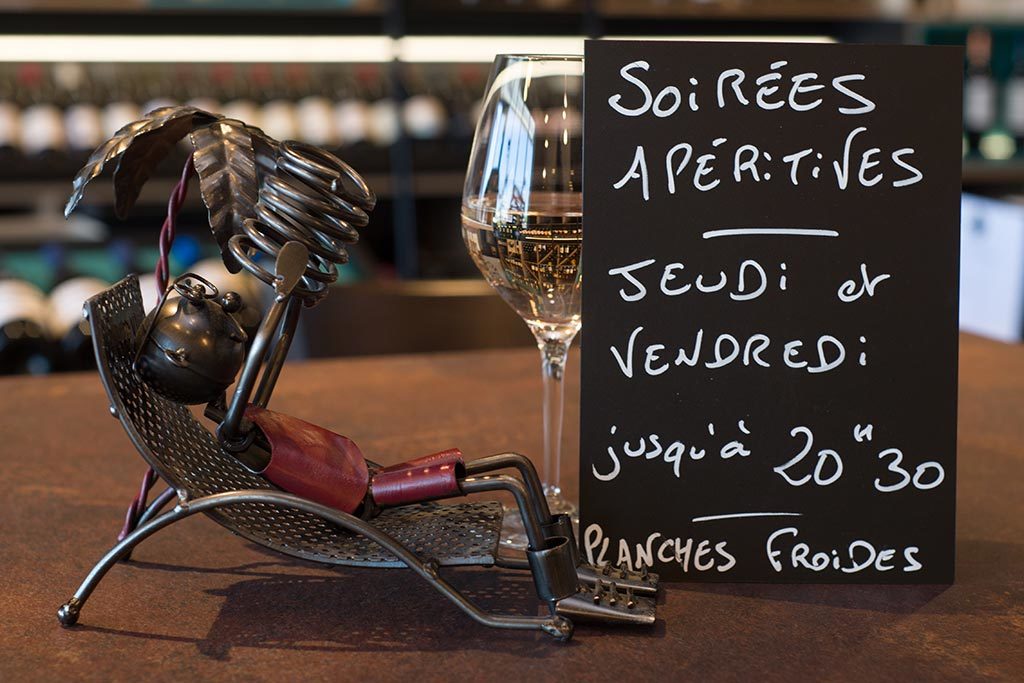 SOIRÉES
APÉRITIVES
JEUDI et
VENDREDI
jusqu'à 20H30
PLANCHES FROIDES